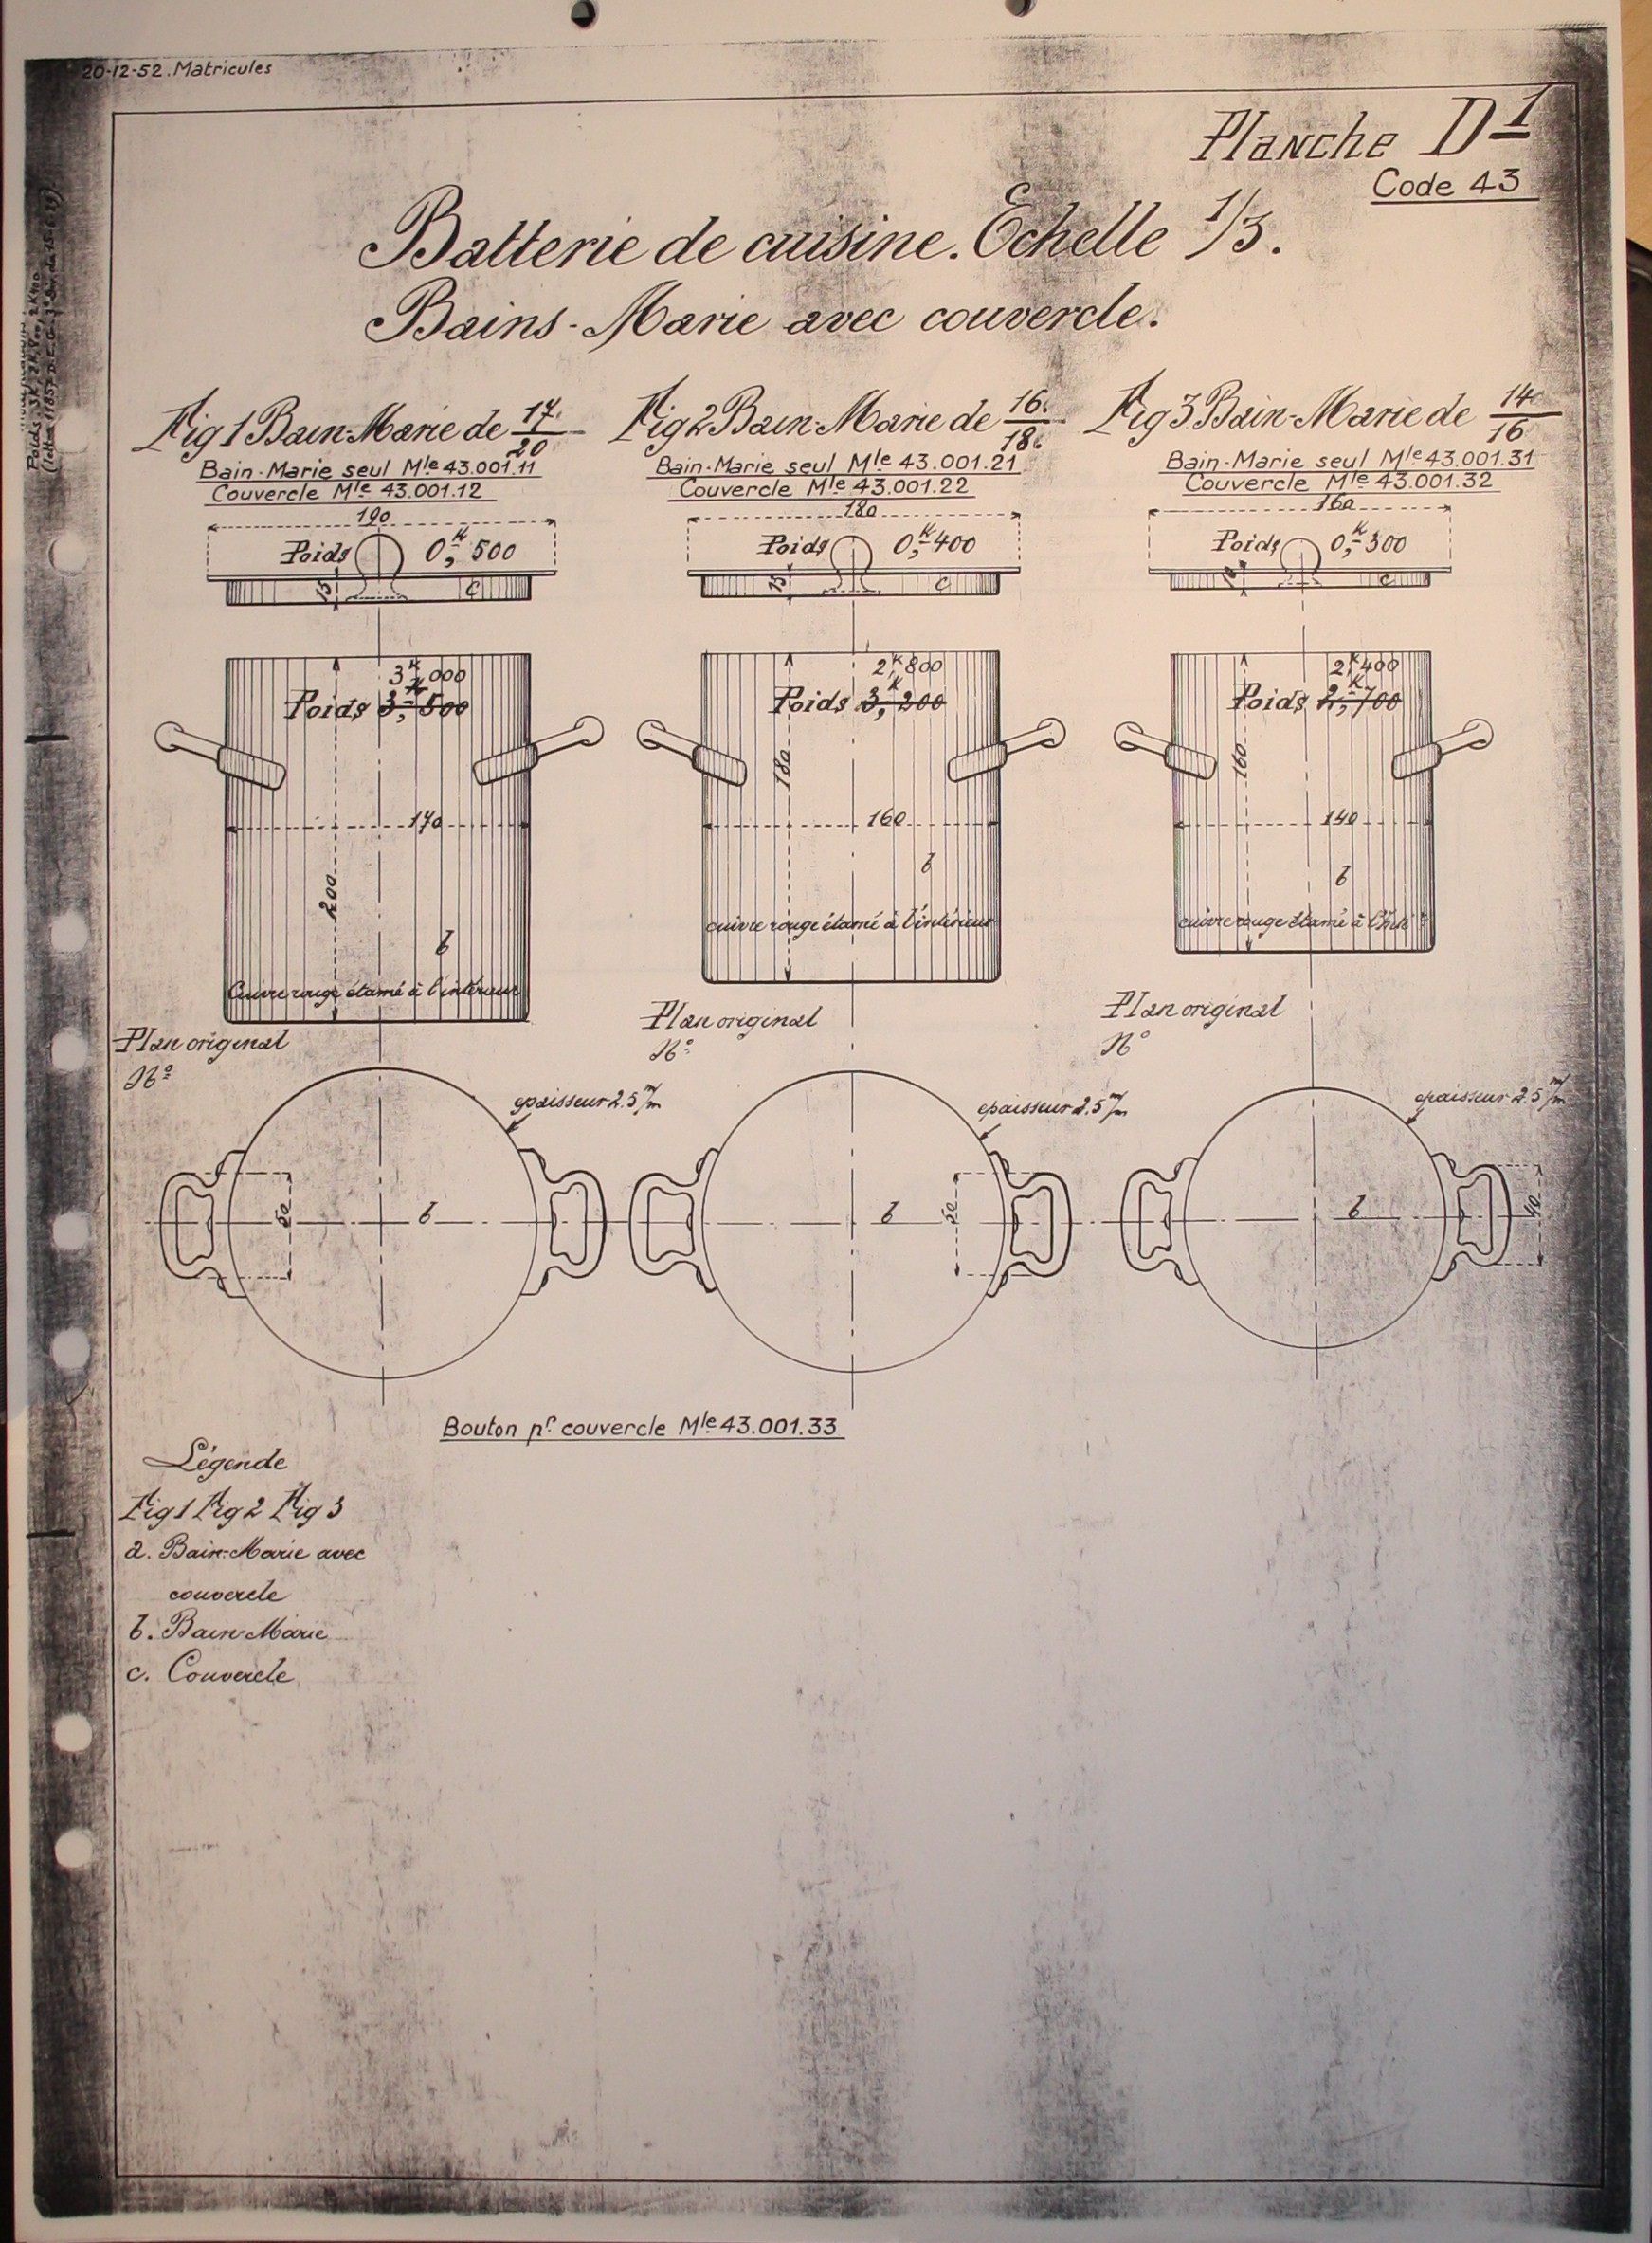 20-12-52. Matricules
Planche D1
Code 43
Batterie de cuisine. Echelle 1/3.
Bains-Marie avec couvercle.
Fig 1 Bain-Marie de 17/20
Bain-Marie seul Mle 43.001.11
Couvercle Mle 43.001.12
190
Poids 0,K 500
15
c
3K,000
Poids 3,K 500
170
200
b
Cuivre rouge étamé à l'intérieur
Plan original
No
epaisseur 2.5 m/m
50
b
Fig 2 Bain-Marie de 16/18
Bain-Marie seul Mle 43.001.21
Couvercle Mle 43.001.22
180
Poids 0,K 400
15
c
2,K 800
Poids 3,K 200
180
160
b
cuivre rouge étamé à l'intérieur
Plan original
No
epaisseur 2.5 m/m
50
b
Fig 3 Bain-Marie de 14/16
Bain-Marie seul Mle 43.001.31
Couvercle Mle 43.001.32
160
Poids 0,K 300
c
2,K 400
Poids 2,K 700
160
140
b
cuivre rouge étamé à
Plan original
No
epaisseur 2.5 m/m
40
b
Bouton pr couvercle Mle 43.001.33
Légende
Fig 1 Fig 2 Fig 3
a. Bain-Marie avec
couvercle
b. Bain-Marie
c. Couvercle
Poids: 3K, 2K800, 2K400